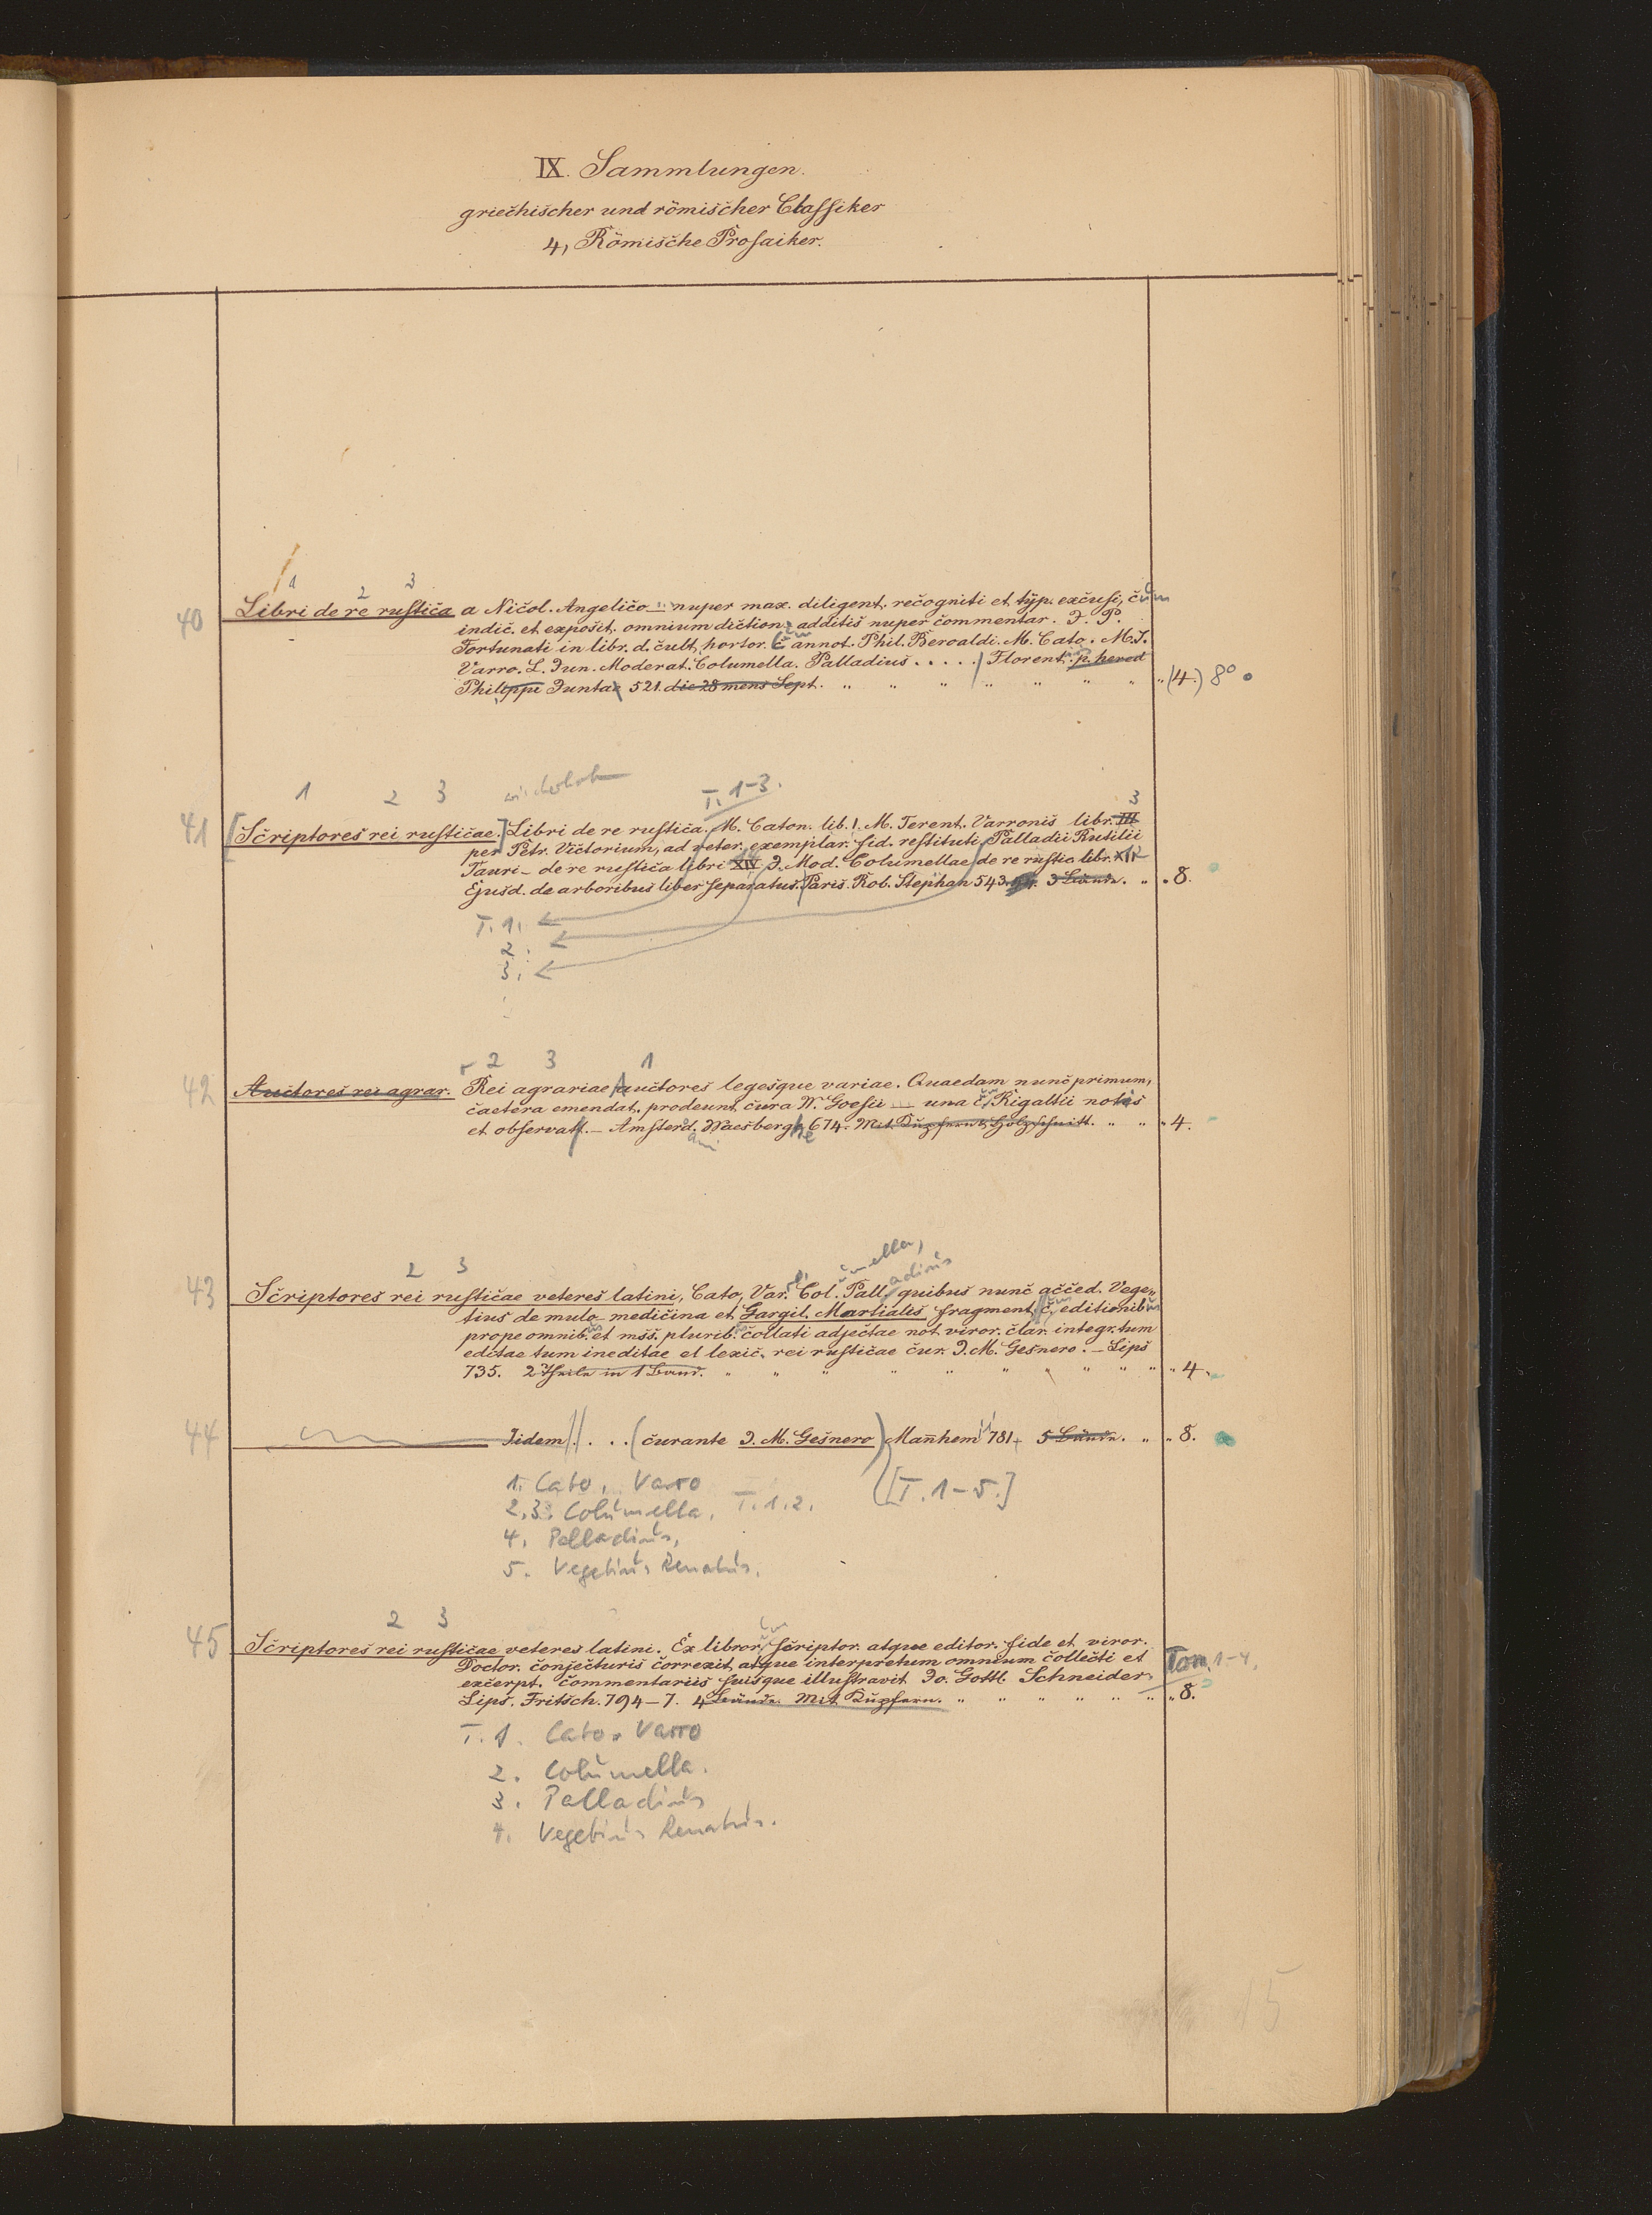 IX. Sammlungen.
griechischer und römischer Classiker
4, Römische Prosaiker.
1 2 3
40 Libri de re rustica a Nicol. Angelico ... nuper max. diligent. recogniti et typ. excusi, cum
indic. et exposit. omnium diction. additis nuper commentar. J. P.
Fortunati in libr. d. cult. hortor. c. annot. Phil. Beroaldi. M. Cato. M. T.
Varro. L. Jun. Moderat. Columella. Palladius . . . . . Florent. p. hered
Philippi Juntae 521. die 28 mens Sept. " " " " " " " " (4.) 8°
1 2 3 wiederholt T. 1-3. 3
41 [Scriptores rei rusticae.] Libri de re rustica. M. Caton. lib. I. M. Terent. Varronis libr. III
per Petr. Victorium, ad veter. exemplar. fid. restituti, Palladii Rutilii
Tauri - de re rustica libri XIV. J. Mod. Columellae de re rustic. libr. XII
Ejusd. de arboribus liber separatus. Paris. Rob. Stephan 543. 3 Bände. " " 8.
T. 1.
2.
3.
2 3 1
42 Auctores rei agrar. Rei agrariae auctores legesque variae. Quaedam nunc primum,
caetera emendat. prodeunt cura W. Goesii ... una c. Rigaltii notis
et observatt. - Amsterd. Waesberghe 674. Mit Kupfern u. Holzschnitt. " " " 4.
2 3 ro, umella, adius
43 Scriptores rei rusticae veteres latini, Cato, Var. Col. Pall. quibus nunc acced. Vege-
tius de mulo-medicina et Gargil. Martialis fragment. c. editionib
prope omnib. et mss. plurib. collati adjectae not. viror. clar. integr. tum
edctae tum ineditae et lexic. rei rusticae cur. J. M. Gesnero. - Lips
735. 2 Theile in 1 Band. " " " " " " " " " " 4.
44 Iidem . . . (curante J. M. Gesnero) Mannhem 781. 5 Bände. " " 8.
1. Cato, Varro ([T. 1-5.]
2,3. Columella, T. 1. 2.
4. Palladius,
5. Vegetius Renatus.
2 3
45 Scriptores rei rusticae veteres latini. Ex libror. scriptor. atque editor. fide et viror.
Doctor. conjecturis correxit, atque interpretum omnium collecti et Tom. 1-4.
excerpt. commentariis suisque illustravit Jo. Gottl. Schneider.
Lips. Fritsch. 794-7. 4 Bände. Mit Kupfern. " " " " " " " 8.
T. 1. Cato. Varro
2. Columella.
3. Palladius
4. Vegetius Renatus.
15